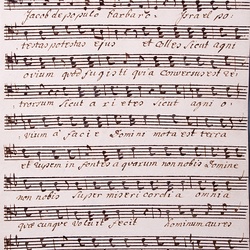 Jacob de populo barbaro. Israel po
testas potestas ejus et Colles sicut agni
ovium quod fugisti quia Conversus est re
trorsum sicut a rietes sicut agni o
vium a facie Domini mota est terra
et rupem in fontes aquarum non nobis Domine
non nobis super misericordia omnia
quæcunque voluit fecit hominum aures